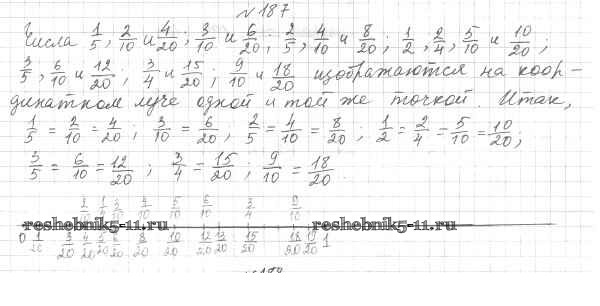 №187
Числа 1/5, 2/10 и 4/20; 3/10 и 6/20; 2/5, 4/10 и 8/20; 1/2, 2/4, 5/10 и 10/20;
3/5, 6/10 и 12/20; 3/4 и 15/20; 9/10 и 18/20 изображаются на коор-
динатном луче одной и той же точкой. Итак,
1/5 = 2/10 = 4/20; 3/10 = 6/20; 2/5 = 4/10 = 8/20; 1/2 = 2/4 = 5/10 = 10/20;
3/5 = 6/10 = 12/20; 3/4 = 15/20; 9/10 = 18/20.
3/10 4/10 5/10 6/10 3/4 9/10
reshebnik5-11.ru reshebnik5-11.ru
0 1/20 3/20 4/20 5/20 6/20 8/20 10/20 12/20 13/20 15/20 18/20 19/20 1